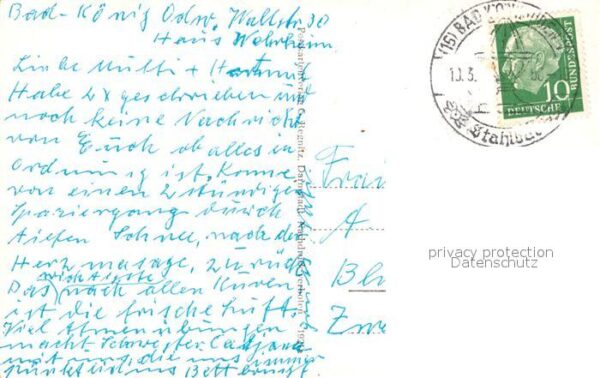 Bad-König Odw. Wallstr. 30
Haus Wehrheim
Liebe Mutti + Hartmud
Habe 2x geschrieben und
noch keine Nachricht
von Euch ob alles in
Ordnung ist. Komme
von einem 2 stündigen
Spaziergang durch
tiefen Schnee, nach der
Herzmasage, zurück
wichtigste
Das nach allen Kuren
ist die frische Luft.
Viel Atmenübungen
macht Schwester
mit uns, die uns immer
pünktlich ins Bett bringt.
Frau
A
Bl
Zw
(16) BAD KÖNIG
10.3.
Stahlbad
10
DEUTSCHE
BUNDESPOST
privacy protection
Datenschutz